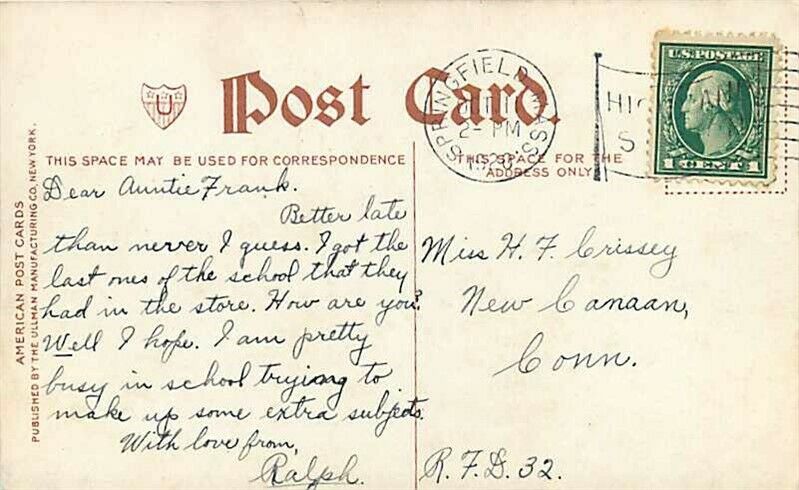 Post Card.
U
SPRINGFIELD MASS.
2- PM
1920
U.S. POSTAGE
1 CENT 1
THIS SPACE MAY BE USED FOR CORRESPONDENCE
THIS SPACE FOR THE
ADDRESS ONLY
AMERICAN POST CARDS
PUBLISHED BY THE ULLMAN MANUFACTURING CO. NEW YORK.
Dear Auntie Frank.
Better late
than nerver I guess. I got the
last ones of the school that they
had in the store. How are you?
Well I hope. I am pretty
busy in school trying to
make up some extra subjects.
With love from,
Ralph.
Miss H. F. Crissey
New Canaan,
Conn.
R.F.D. 32.